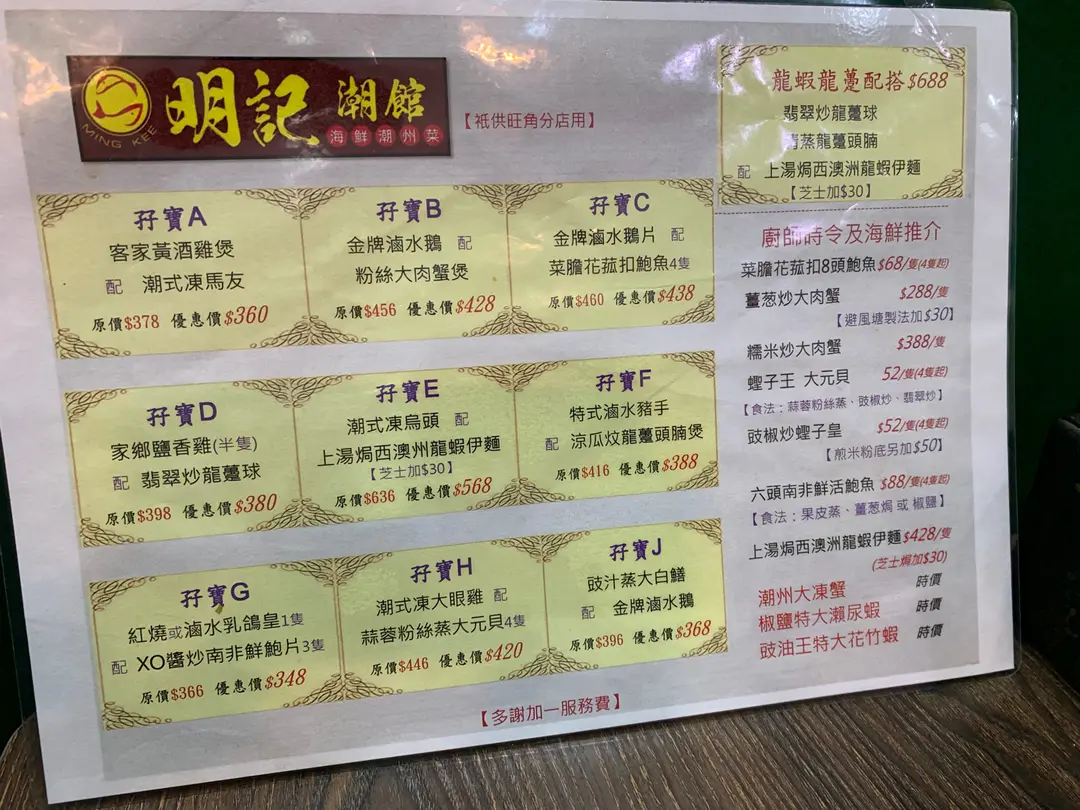 MING KEE
明記 潮館
海鮮潮州菜
【衹供旺角分店用】
孖寶A
客家黃酒雞煲
配 潮式凍馬友
原價$378 優惠價$360
孖寶B
金牌滷水鵝 配
粉絲大肉蟹煲
原價$456 優惠價$428
孖寶C
金牌滷水鵝片 配
菜膽花菰扣鮑魚4隻
原價$460 優惠價$438
孖寶D
家鄉鹽香雞(半隻)
配 翡翠炒龍躉球
原價$398 優惠價$380
孖寶E
潮式凍烏頭 配
上湯焗西澳洲龍蝦伊麵
【芝士加$30】
原價$636 優惠價$568
孖寶F
特式滷水豬手
配 涼瓜炆龍躉頭腩煲
原價$416 優惠價$388
孖寶G
紅燒或滷水乳鴿皇1隻
配 XO醬炒南非鮮鮑片3隻
原價$366 優惠價$348
孖寶H
潮式凍大眼雞 配
蒜蓉粉絲蒸大元貝4隻
原價$446 優惠價$420
孖寶J
豉汁蒸大白鱔
配 金牌滷水鵝
原價$396 優惠價$368
【多謝加一服務費】
龍蝦龍躉配搭$688
翡翠炒龍躉球
清蒸龍躉頭腩
配 上湯焗西澳洲龍蝦伊麵
【芝士加$30】
廚師時令及海鮮推介
菜膽花菰扣8頭鮑魚$68/隻(4隻起)
薑葱炒大肉蟹 $288/隻
【避風塘製法加$30】
糯米炒大肉蟹 $388/隻
蟶子王 大元貝 52/隻(4隻起)
【食法：蒜蓉粉絲蒸、豉椒炒、翡翠炒】
豉椒炒蟶子皇 $52/隻(4隻起)
【煎米粉底另加$50】
六頭南非鮮活鮑魚 $88/隻(4隻起)
【食法：果皮蒸、薑葱焗 或 椒鹽】
上湯焗西澳洲龍蝦伊麵$428/隻
(芝士焗加$30)
潮州大凍蟹 時價
椒鹽特大瀨尿蝦 時價
豉油王特大花竹蝦 時價